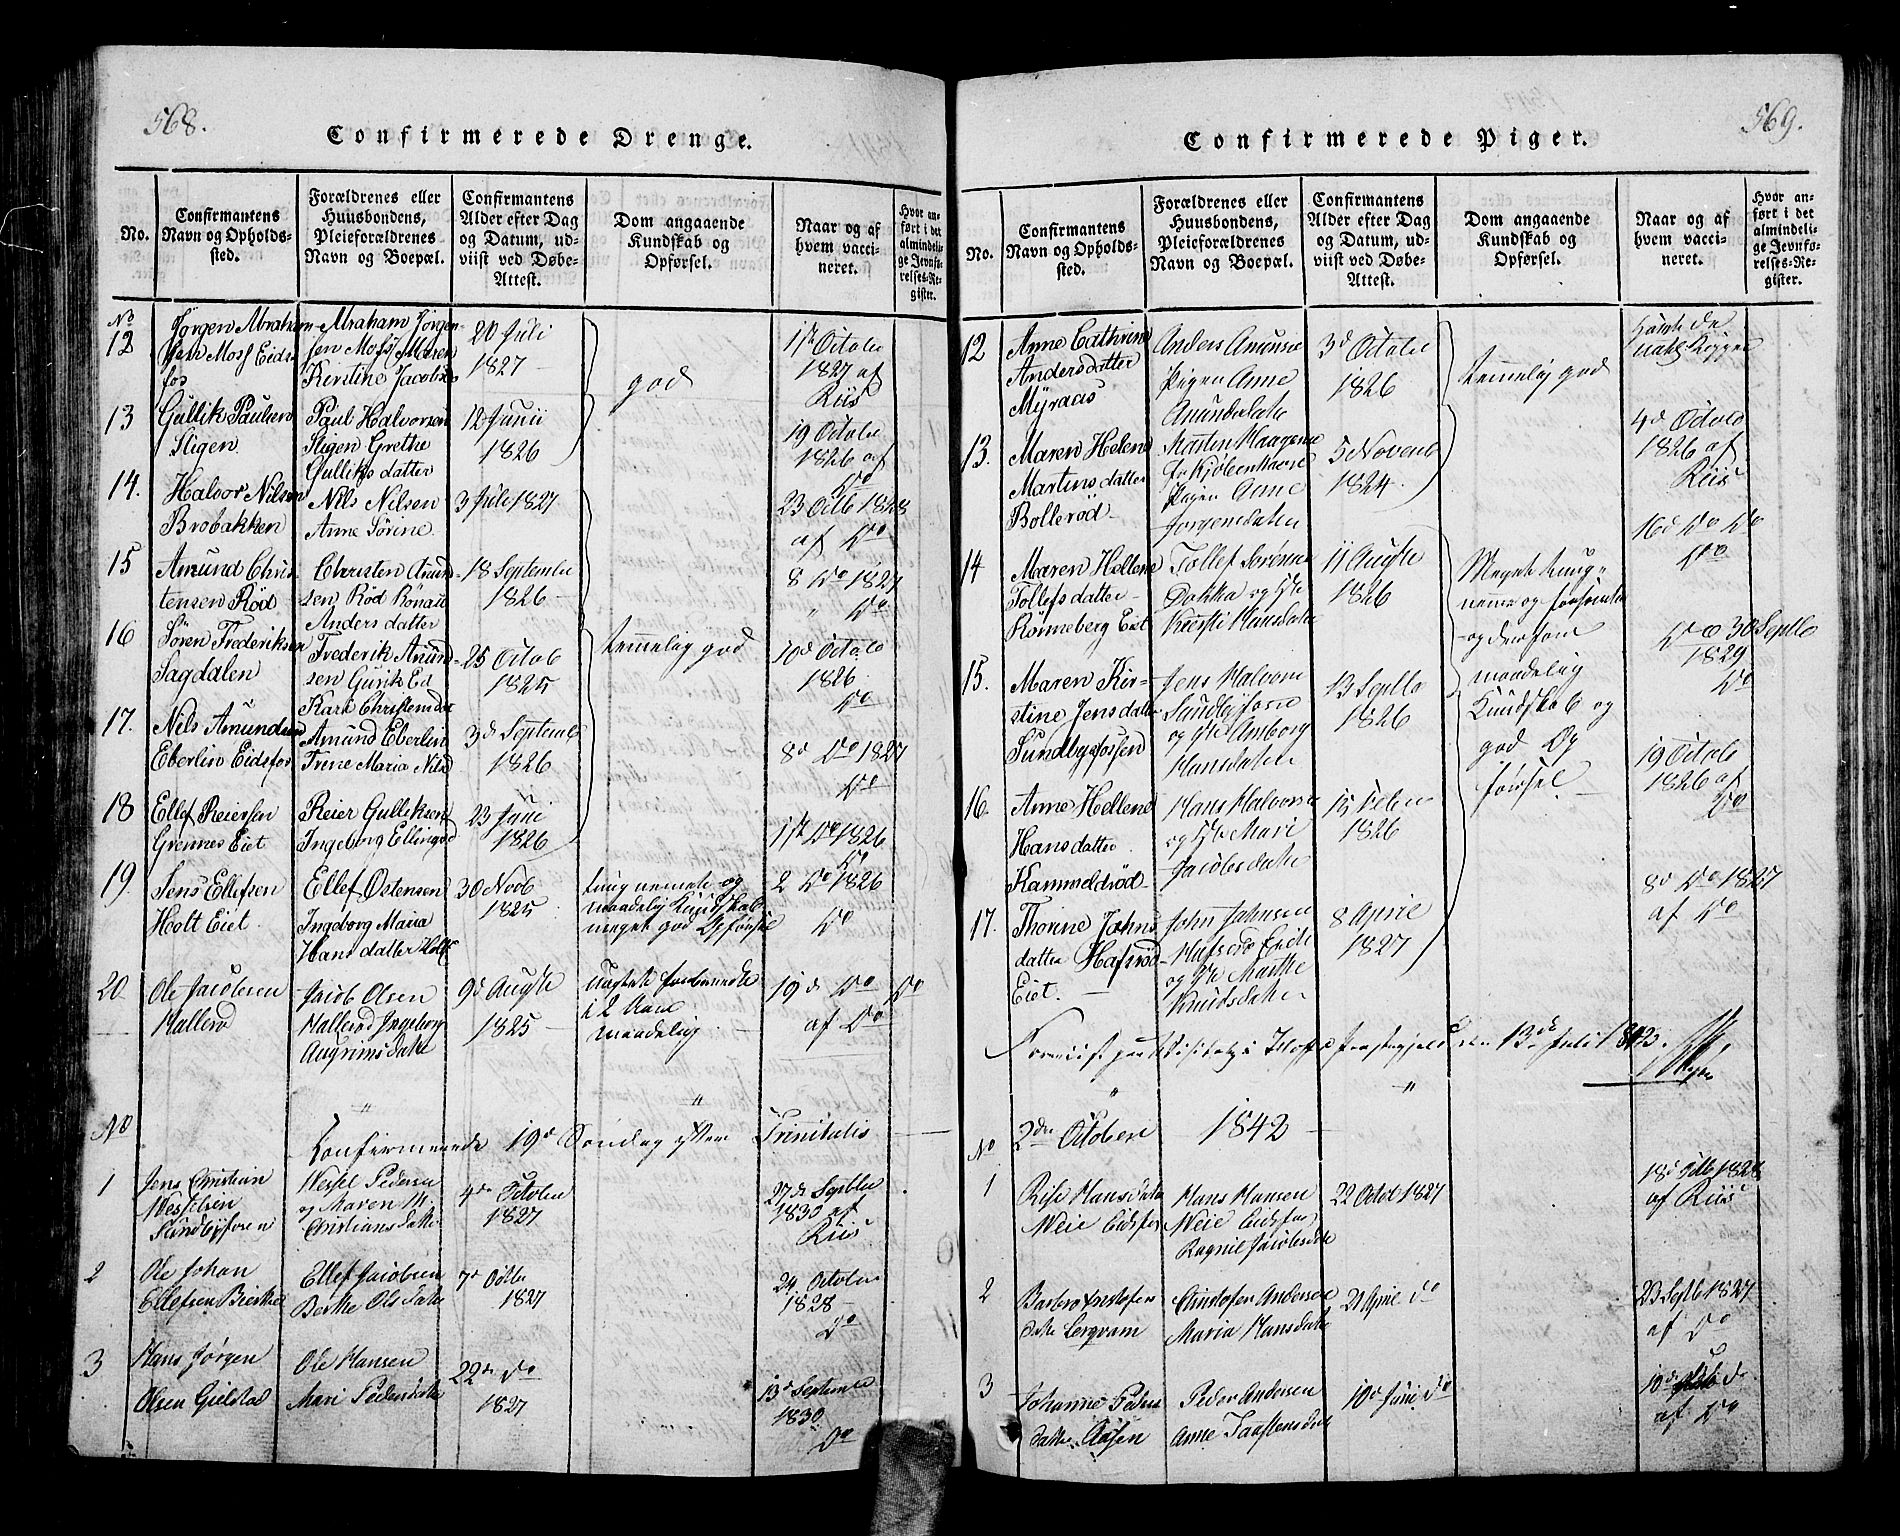 568.
Confirmerede Drenge.
No.
Confirmantens
Navn og Opholds-
sted.
Forældrenes eller
Huusbondens,
Pleieforældrenes
Navn og Boepæl.
Confirmantens
Alder efter Dag
og Datum, ud-
viist ved Døbe-
Attest.
Dom angaaende
Kundskab og
Opførsel.
Naar og af
hvem vacci-
neret.
Hvor an-
ført i det
almindeli-
ge Jevnfø-
relses-Re-
gister.
No
12
Jørgen Abraham-
sen Moss Eids-
fos
Abraham Jørgen-
sen Moss Maren
Kirstine Jacobs
20 Juli
1827
god
17de Octobr
1827 af
Riis
13
Gullik Paulsen
Sligen
Paul Halvorsen
Sligen Grethe
Gulliks datter
12 Junii
1826
19 Octobr
1826 af
Do
14.
Halvor Nilsen
Brobakken
Nils Nilsen
Anne Sørine
3 Juli 1827
23 Octb 1828
af Do
15
Amund Chris-
tensen Röd
Christen Amund-
sen Röd
Anders datter
18 Septembr
1826
8 Do 1827
" Do
16
Sören Frederiksen
Sagdalen
Frederik Amund-
sen
Kari Christensdr
25 Octob
1825
temmelig god
10d Octobr
1826
Do
17.
Nils Amundsen
Eberlin Eidsfos
Amund Eberlin
Trine Maria Nilsd
3de Septemb
1826
8d Do 1827
Do
18
Ellef Reiersen
Grennes Eiet
Reier Gulliksen
Ingeborg Ellingsd
23 Juni
1826
17de Do 1826
Do
19.
Jens Ellefsen
Holt Eiet
Ellef Ostensen
Ingeborg Maria
Hans datter Holt
30 Novb
1825
tung nemme og
maadelig Kundskab
meget god Opførsel
2 Do 1826
Do
20
Ole Jacobsen
Hallerød
Jacob Olsen
Hallerød Ingeborg
Augrimsdatter
9d Augte
1825
i 2 Aar
maadelig
19de Do Do
af Do
"
"
No
Konfirmerede 19d Søndag efter Trinitatis
1
Jens Christian
Wesselsen
Sundbyfossen
Wessel Pedersen
og Maren
Christiansdatter
4de October
1827
27de Septbr
1830 af
Riis
2
Ole Johan
Ellefsen Bierke
Ellef Jacobsen
Berthe Olsdatter
7de Octbr
1827
24 October
1828
Do
3
Hans Jørgen
Olsen Gielstad
Ole Hansen
Mari Pedersdatter
22de Do
1827
13d Septembr
1830
Do
569.
Confirmerede Piger.
No.
Confirmantens
Navn og Opholds-
sted.
Forældrenes eller
Huusbondens,
Pleieforældrenes
Navn og Boepæl.
Confirmantens
Alder efter Dag
og Datum, ud-
viist ved Døbe-
Attest.
Dom angaaende
Kundskab og
Opførsel.
Naar og af
hvem vacci-
neret.
Hvor an-
ført i det
almindeli-
ge Jevnfø-
relses-Re-
gister.
12
Anne Cathrine
Andersdatter
Myraas
Anders Amunds
Pigen Anne
Amundsdatter
3d Octobr
1826
temmelig god
13.
Maren Helene
Martins datter
Bollerød
Morten Haagens
fr Kjøbenhavn
Pigen Anne
Jørgensdatter
5 Novemb
1824
4d Octobr
1826 af
Riis
14
Maren Hellene
Tollefs datter
Rönneberg Eiet
Tollef Sørens
Dakka og Hst
Kiersti Hansdatter
11 Augte
1826
Meget tung-
nemme og
og derfor
maadelig
Kundskab og
god Op
førsel
16d Do Do
Do
15.
Maren Kir-
stine Jens datter
Sundbyfossen
Jens Halvors
Sundbyfosse
og Hst Amborg
Hansdatter
13 Septbr
1826
Do 30 Septbr
1829
Do
16.
Anne Hellene
Hans datter
Kammeldröd
Hans Halvors
og Hst Mari
Jacobsdatter
15 Febr
1826
19 Octobr
1826 af
Do
17.
Thorine Johns
datter Hafsröd
Eiet.
John Johnsen
Hafsrød Eiet
og Hst Marthe
Knudsdatter
8 April
1827
8d Do 1827
af Do
Foreviist paa Visitats i Hofs Præstegjeld den 13de Juli 1843.
"
"
No
2den October 1842
1
Hansdatter
Weie Eidsfos
Hans Hansen
Weie Eidsfos
Ragnil Jacobsdatter
22 Octob 1827
18d Octb 1828
af Riis
2
Barbro Cristofers
datter Bergvam
Christofer Anderse
Maria Hansdatter
21 April Do
23 Septb 1827
af Do
3
Johanne Peders
datter Aasen
Peder Andersen
Anne Taastensdatter
10d Juni Do
10d Do
af Do